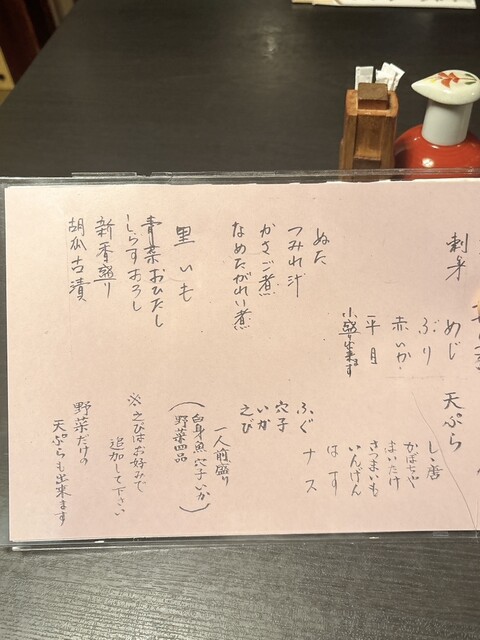 刺身
めじ
ぶり
赤いか
平目
小盛出来ます
ぬた
つみれ汁
かさご煮
なめたがれい煮
里いも
青菜おひたし
しらすおろし
新香盛り
胡瓜古漬
天ぷら
しし唐
かぼちゃ
まいたけ
さつまいも
いんげん
はす
ナス
ふぐ
穴子
いか
えび
一人前盛り
(白身魚 穴子 いか
野菜四品)
※えびはお好みで
追加して下さい
野菜だけの
天ぷらも出来ます